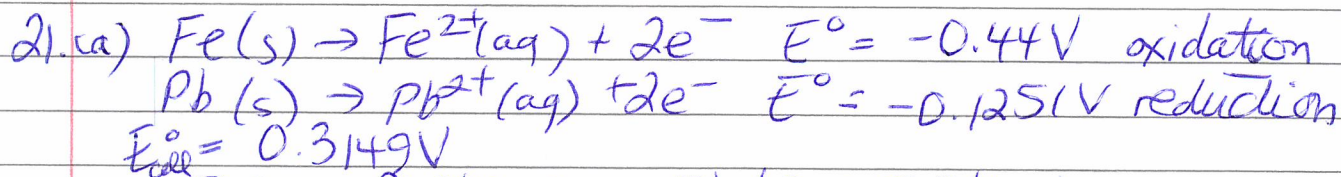 21.(a) Fe(s) → Fe²⁺(aq) + 2e⁻ E° = -0.44V oxidation
Pb(s) → Pb²⁺(aq) +2e⁻ E° = -0.1251V reduction
E°cell = 0.3149V